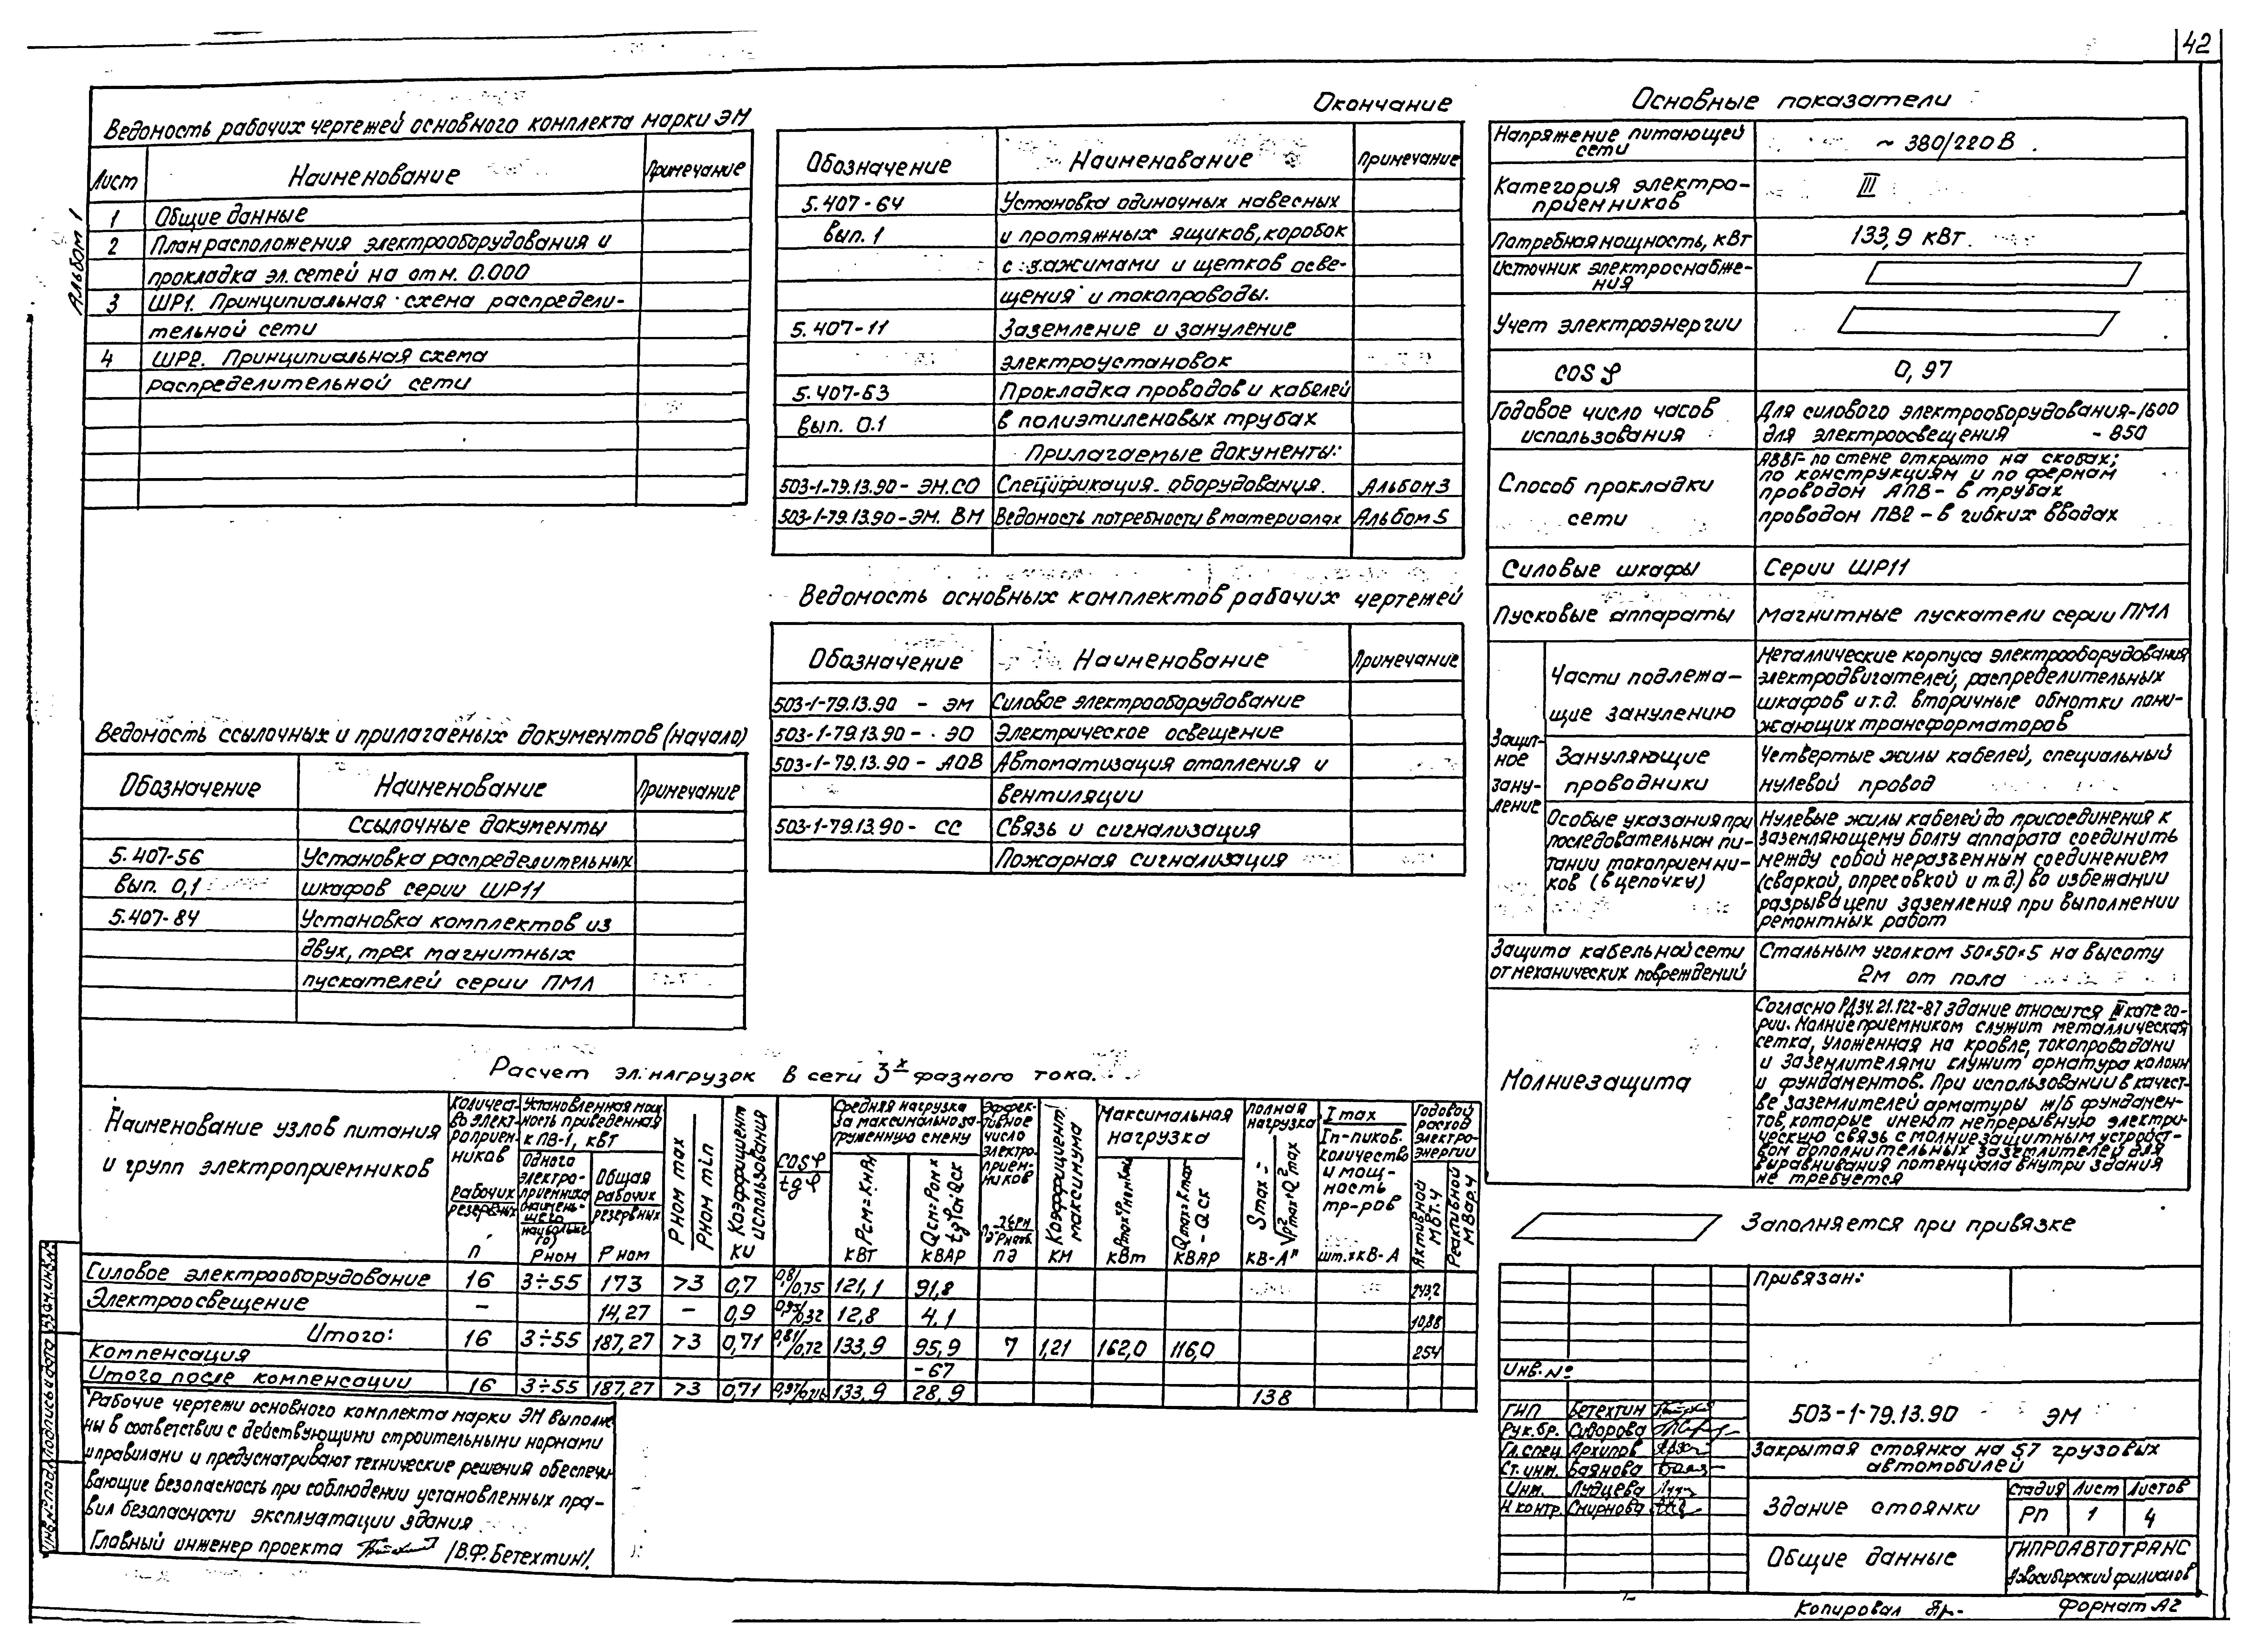 42
Альбом 1
Ведомость рабочих чертежей основного комплекта марки ЭМ
Лист Наименование Примечание
1 Общие данные
2 План расположения электрооборудования и
прокладка эл. сетей на отм. 0.000
3 ШР1. Принципиальная схема распредели-
тельной сети
4 ШР2. Принципиальная схема
распределительной сети
Ведомость ссылочных и прилагаемых документов (начало)
Обозначение Наименование Примечание
Ссылочные документы
5.407-56 Установка распределительных
вып. 0,1 шкафов серии ШР11
5.407-84 Установка комплектов из
двух, трех магнитных
пускателей серии ПМЛ
Окончание
Обозначение Наименование Примечание
5.407-64 Установка одиночных навесных
вып. 1 и протяжных ящиков, коробок
с зажимами и щитков осве-
щения и токопроводы.
5.407-11 Заземление и зануление
электроустановок
5.407-63 Прокладка проводов и кабелей
вып. 0.1 в полиэтиленовых трубах
Прилагаемые документы:
503-1-79.13.90- ЭМ.СО Спецификация оборудования. Альбом 3
503-1-79.13.90-ЭМ. ВМ Ведомость потребности в материалах Альбом 5
Ведомость основных комплектов рабочих чертежей
Обозначение Наименование Примечание
503-1-79.13.90 - ЭМ Силовое электрооборудование
503-1-79.13.90 - ЭО Электрическое освещение
503-1-79.13.90 - АОВ Автоматизация отопления и
вентиляции
503-1-79.13.90 - СС Связь и сигнализация
Пожарная сигнализация
Основные показатели
Напряжение питающей
сети
~ 380/220 В
Категория электро-
приемников
III
Потребная мощность, кВт 133,9 кВт.
Источник электроснабже-
ния
Учет электроэнергии
cos φ 0,97
Годовое число часов
использования
Для силового электрооборудования-1600
для электроосвещения - 850
Способ прокладки
сети
АВВГ- по стене открыто на скобах;
по конструкциям и по фермам
проводом АПВ - в трубах
проводом ПВ2 - в гибких вводах
Силовые шкафы Серии ШР11
Пусковые аппараты Магнитные пускатели серии ПМЛ
Защит-
ное
зану-
ление
Части подлежа-
щие занулению
Металлические корпуса электрооборудования
электродвигателей, распределительных
шкафов и т.д. вторичные обмотки пони-
жающих трансформаторов
Зануляющие
проводники
Четвертые жилы кабелей, специальный
нулевой провод
Особые указания при
последовательном пи-
тании токоприемни-
ков (в цепочку)
Нулевые жилы кабелей до присоединения к
заземляющему болту аппарата соединить
между собой неразъемным соединением
(сваркой, опресовкой и т.д.) во избежании
разрыва цепи заземления при выполнении
ремонтных работ
Защита кабельной сети
от механических повреждений
Стальным уголком 50×50×5 на высоту
2м от пола
Молниезащита
Согласно РД34.21.122-87 здание относится III катего-
рии. Молниеприемником служит металлическая
сетка, уложенная на кровле, токопроводами
и заземлителями служит арматура колонн
и фундаментов. При использовании в качест-
ве заземлителей арматуры ж/б фундамен-
тов, которые имеют непрерывную электри-
ческую связь с молниезащитным устройст-
вом дополнительных заземлителей для
выравнивания потенциала внутри здания
не требуется
Заполняется при привязке
Расчет эл. нагрузок в сети 3х фазного тока.
Наименование узлов питания
и групп электроприемников
Количест-
во элект-
роприем-
ников
Рабочих
резервных
n
Установленная мощ-
ность приведенная
к ПВ-1, кВт
Одного
электро-
приемника
(наимень-
шего
наибольше
го)
Рном
Общая
рабочих
резервных
Рном
Рном max
Рном min
Коэффициент
использования
Kи
cos φ
tg φ
Средняя нагрузка
за максимально за-
груженную смену
Рсм=КиРн
кВт
кВАР
Эффек-
тивное
число
электро-
прием-
ников
nэ
Коэффициент
максимума
Км
Максимальная
нагрузка
кВт
Qmax=Kmax
- Qск
кВАР
Полная
нагрузка
Smax =
кВ-А
I max
Iп-пиков.
количество
и мощ-
ность
тр-ров
шт.×кВ-А
Годовой
расход
электро-
энергии
Активной
МВт.ч
Реактивной
МВар.ч
Силовое электрооборудование 16 3÷55 173 >3 0,7 0,8/0,75 121,1 91,8 243,2
Электроосвещение - 14,27 - 0,9 0,95/0,32 12,8 4,1 10,88
Итого: 16 3÷55 187,27 >3 0,71 0,81/0,72 133,9 95,9 7 1,21 162,0 116,0 254
Компенсация -67
Итого после компенсации 16 3÷55 187,27 >3 0,71 0,97/0,216 133,9 28,9 138
Рабочие чертежи основного комплекта марки ЭМ выполне
ны в соответствии с действующими строительными нормами
и правилами и предусматривают технические решения обеспечи
вающие безопасность при соблюдении установленных пра-
вил безопасности эксплуатации здания
Главный инженер проекта /В.Ф.Бетехтин/.
Инв.№ подл. Подпись и дата Взам.инв.№
Привязан:
Инв.№
ГИП Бетехтин
Рук.бр. Сидорова
Гл.спец Архипов
Ст.инж. Баянова
Инж. Лудцева
Н контр. Смирнова
503-1-79.13.90 ЭМ
Закрытая стоянка на 57 грузовых
автомобилей
Здание стоянки
Стадия Лист Листов
РП 1 4
Общие данные
ГИПРОАВТОТРАНС
Новосибирский филиалов
Копировал
Формат А2